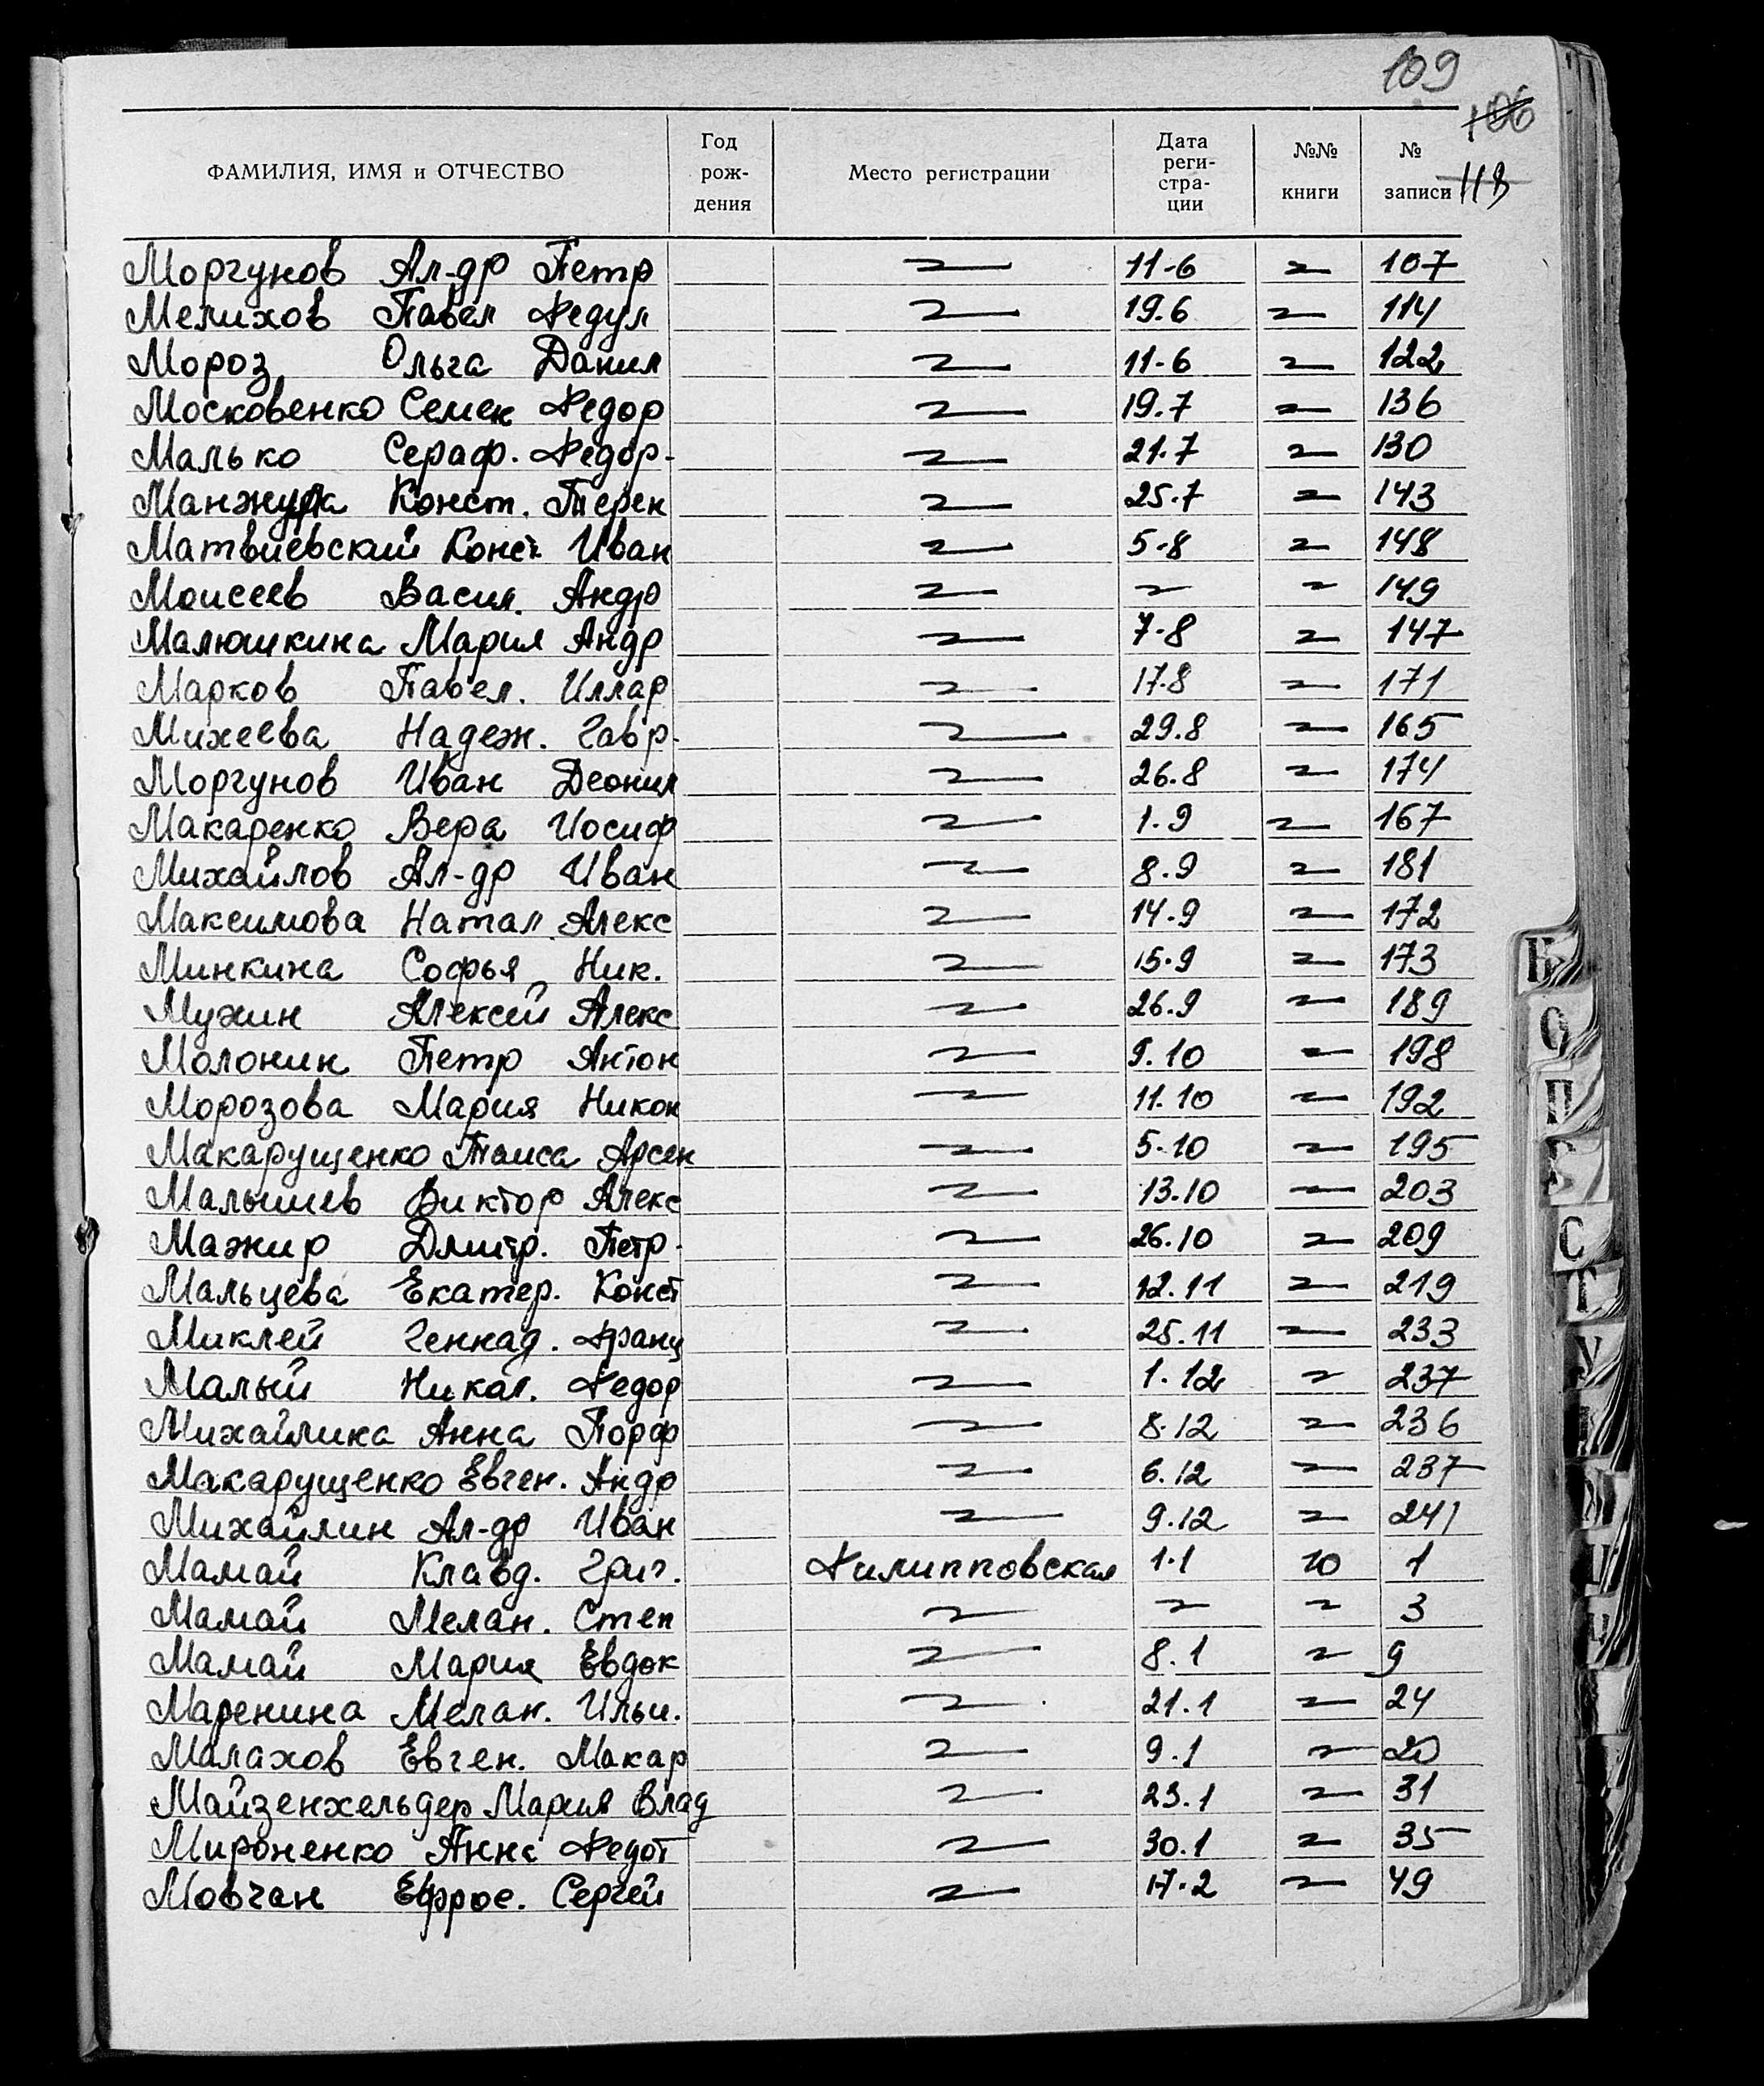 109
106
118
ФАМИЛИЯ, ИМЯ и ОТЧЕСТВО Год рождения Место регистрации Дата регистрации №№ книги № записи
Моргунов Ал-др Петр 〃 11-6 〃 107
Мелихов Павел Федул 〃 19.6 〃 114
Мороз Ольга Данил 〃 11-6 〃 122
Московенко Семен Федор 〃 19.7 〃 136
Малько Сераф. Федор. 〃 21.7 〃 130
Манжула Конст. Терен 〃 25.7 〃 143
Матвиевский Конст Иван 〃 5-8 〃 148
Моисеев Васил. Андр 〃 〃 〃 149
Малюшкина Мария Андр 〃 7-8 〃 147
Марков Павел. Иллар 〃 17.8 〃 171
Михеева Надеж. Гавр. 〃 29.8 〃 165
Моргунов Иван Деонил 〃 26.8 〃 174
Макаренко Вера Иосиф 〃 1.9 〃 167
Михайлов Ал-др Иван 〃 8.9 〃 181
Максимова Натал. Алекс 〃 14.9 〃 172
Минкина Софья Ник. 〃 15.9 〃 173
Мухин Алексей Алекс 〃 26.9 〃 189
Молонин Петр Антон 〃 9.10 〃 198
Морозова Мария Никон 〃 11.10 〃 192
Макарущенко Таиса Арсен 〃 5.10 〃 195
Малышев Виктор Алекс 〃 13.10 〃 203
Мажир Дмитр. Петр. 〃 26.10 〃 209
Мальцева Екатер. Конст 〃 12.11 〃 219
Миклей Геннад. Франц 〃 25.11 〃 233
Малый Никол. Федор 〃 1.12 〃 237
Михайлика Анна Порф 〃 8.12 〃 236
Макарущенко Евген. Андр 〃 6.12 〃 237
Михайлин Ал-др Иван 〃 9.12 〃 241
Мамай Клавд. Григ. Филипповская 1.1 10 1
Мамай Мелан. Степ 〃 〃 〃 3
Мамай Мария Евдок 〃 8.1 〃 9
Маренина Мелан. Ильи. 〃 21.1 〃 24
Малахов Евген. Макар 〃 9.1 〃 20
Майзенхельдер Мария Влад 〃 23.1 〃 31
Мироненко Анна Федот 〃 30.1 〃 35
Мовчан Ефрос. Сергей 〃 17.2 〃 49
Н
О
П
С
Т
У